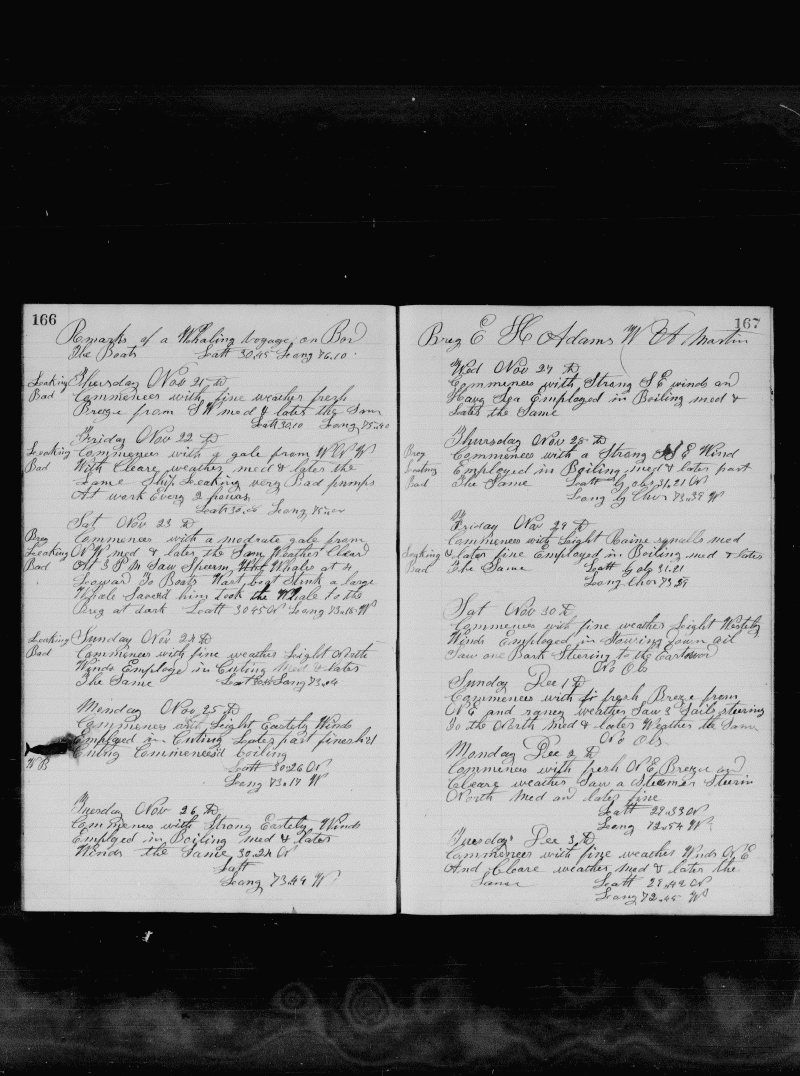 166
Remarks of a Whaling Voyage on Bord
The Boats Latt 30.45 Long 76.10
Leaking Bad
Thursday Nov 21 D
Commences with fine weather fresh
Breeze from SW med & later the Sam
Latt 30.10 Long 75.40
Friday Nov 22 D
Leaking Commences with a gale from WNW
Bad With Cleare weather med & later the
Same Ship Leaking very Bad pumps
At work Every 2 hours
Latt 30.00 Long
Sat Nov 23 D
Breg Commences with a modrate gale from
Leaking NW med & later the Sam Weather Clear
Bad At 3 P M Saw Sperm Whales at 4
Loward To Boats Wast boat Struk a large
Whale Saved him Took the Whale to the
Breg at dark Latt 30 45 N Long 73.18 W
Leaking Sunday Nov 24 D
Bad Commences with fine weather Light North
Winds Employe in Cuting Med & later
The Same Latt Long 73.
Monday Nov 25 D
Commences with Light Eastely Winds
Employed in Cuting Later part finesh'd
Cuting Commences'd Boiling
W B
Latt 30.26 N
Long 73.17 W
Tuesday Nov 26 D
Commences with Strong Eastely Winds
Employed in Boiling med & later
Winds the Same 30.24 N
Latt
Long 73.49 W
167
Breg E H Adams W A Martin
Wed Nov 27 D
Commences with Strong S E winds an
Havy Sea Employed in Boiling med &
Later the Same
Thurrsday Nov 28 D
Breg Commences with a Strong S E Wind
Leaking Employed in Boiling med & later part
Bad The Same Latt By obs 31.21 N
Long By Chor 73.39 W
Friday Nov 29 D
Commences with Light Raine squalls med
Leaking & later fine Employed in Boiling med & later
Bad The Same Latt By obs 31.21
Long Chor 73 29
Sat Nov 30 D
Commences with fine weather Light Westely
Winds Employed in Stowing down oil
Saw one Bark Steering to the Eastward
No Obs
Sunday Dec 1 D
Commences with fresh Breeze from
N E and raney weather Saw 3 Sails steering
To the North med & later Weather the Same
No Obs
Monday Dec 2 D
Commences with fresh N E Breeze and
Cleare weather Saw a Steemer Steerin
North Med an later fine
Latt 29.33 N
Long 72.54 W
Tuesday Dec 3 D
Commences with fine weather Winds N E
And Cleare weather med & later the
Same Latt 29.49 N
Long 72.45 W